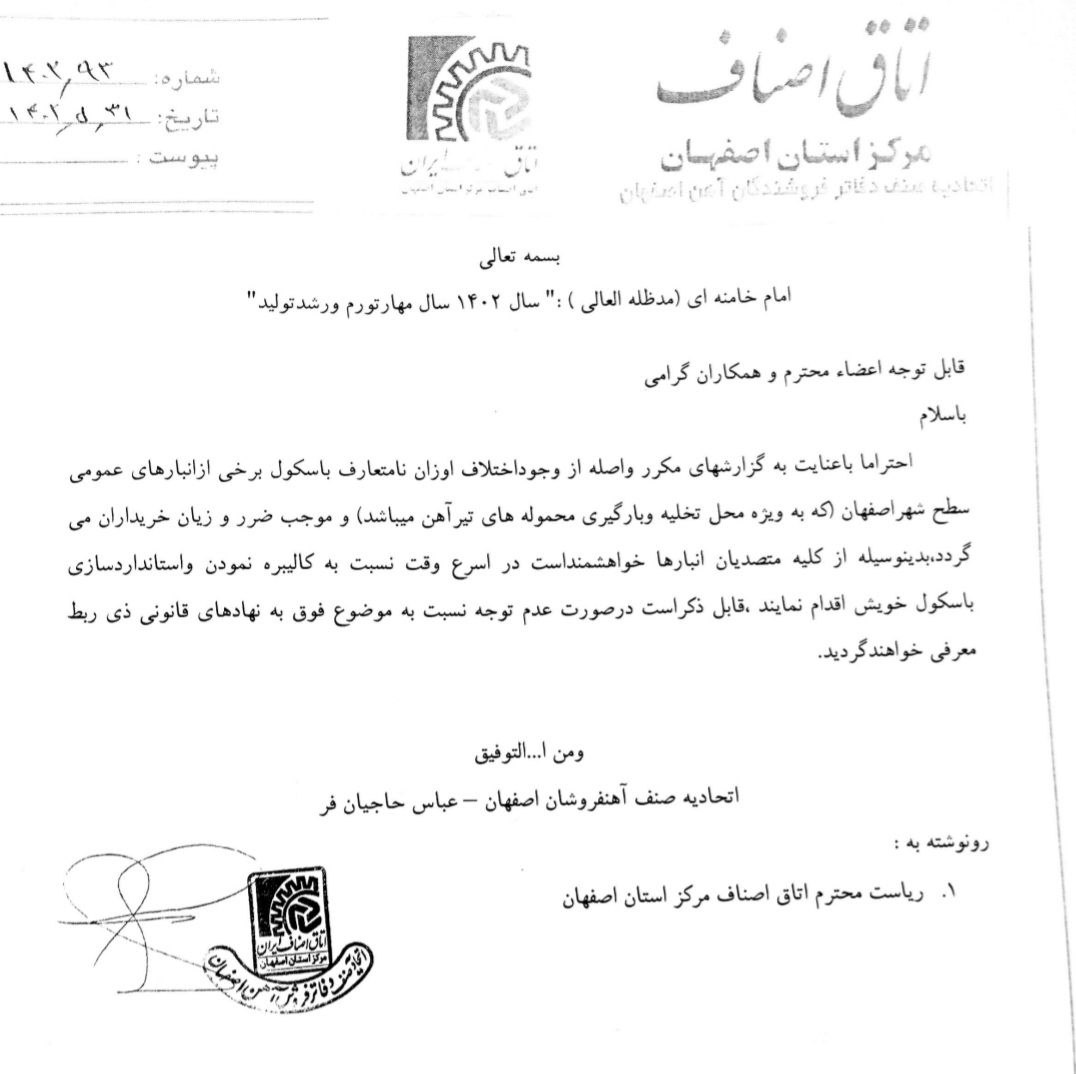 اتاق اصناف
مرکز استان اصفهان
شماره: ۱۴۰۲٫۹۳
تاریخ: ۱۴۰۲٫۵٫۳۱
پیوست :
اتاق اصناف ایران
اتاق اصناف مرکز استان اصفهان
بسمه تعالی
امام خامنه ای (مدظله العالی ) :" سال ۱۴۰۲ سال مهارتورم ورشدتولید"
قابل توجه اعضاء محترم و همکاران گرامی
باسلام
احتراما باعنایت به گزارشهای مکرر واصله از وجوداختلاف اوزان نامتعارف باسکول برخی ازانبارهای عمومی
سطح شهراصفهان (که به ویژه محل تخلیه وبارگیری محموله های تیرآهن میباشد) و موجب ضرر و زیان خریداران می
گردد،بدینوسیله از کلیه متصدیان انبارها خواهشمنداست در اسرع وقت نسبت به کالیبره نمودن واستانداردسازی
باسکول خویش اقدام نمایند ،قابل ذکراست درصورت عدم توجه نسبت به موضوع فوق به نهادهای قانونی ذی ربط
معرفی خواهندگردید.
ومن ا...التوفیق
اتحادیه صنف آهنفروشان اصفهان – عباس حاجیان فر
رونوشته به :
۱. ریاست محترم اتاق اصناف مرکز استان اصفهان
اتاق اصناف ایران
مرکز استان اصفهان
اتحادیه صنف دفاتر فروش آهن اصفهان